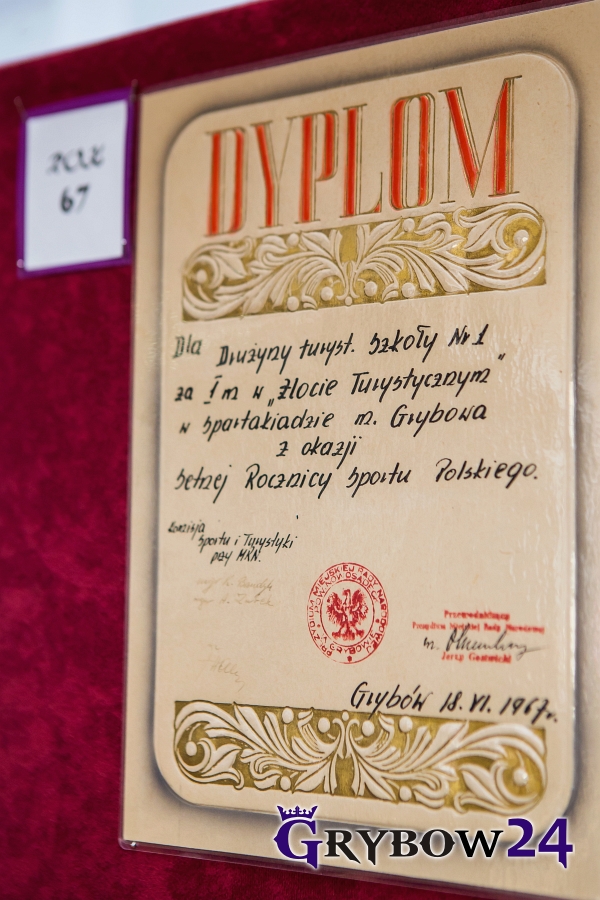 ROK
67
DYPLOM
Dla Drużyny turyst. Szkoły Nr 1
za I m w „Zlocie Turystycznym"
w Spartakiadzie m. Grybowa
z okazji
Setnej Rocznicy Sportu Polskiego.
Komisja
Sportu i Turystyki
przy MRN.
PREZYDIUM MIEJSKIEJ RADY NARODOWEJ
GRYBÓW
Przewodniczący
Prezydium Miejskiej Rady Narodowej
Jerzy
Grybów 18.VI.1967r.
GRYBOW24